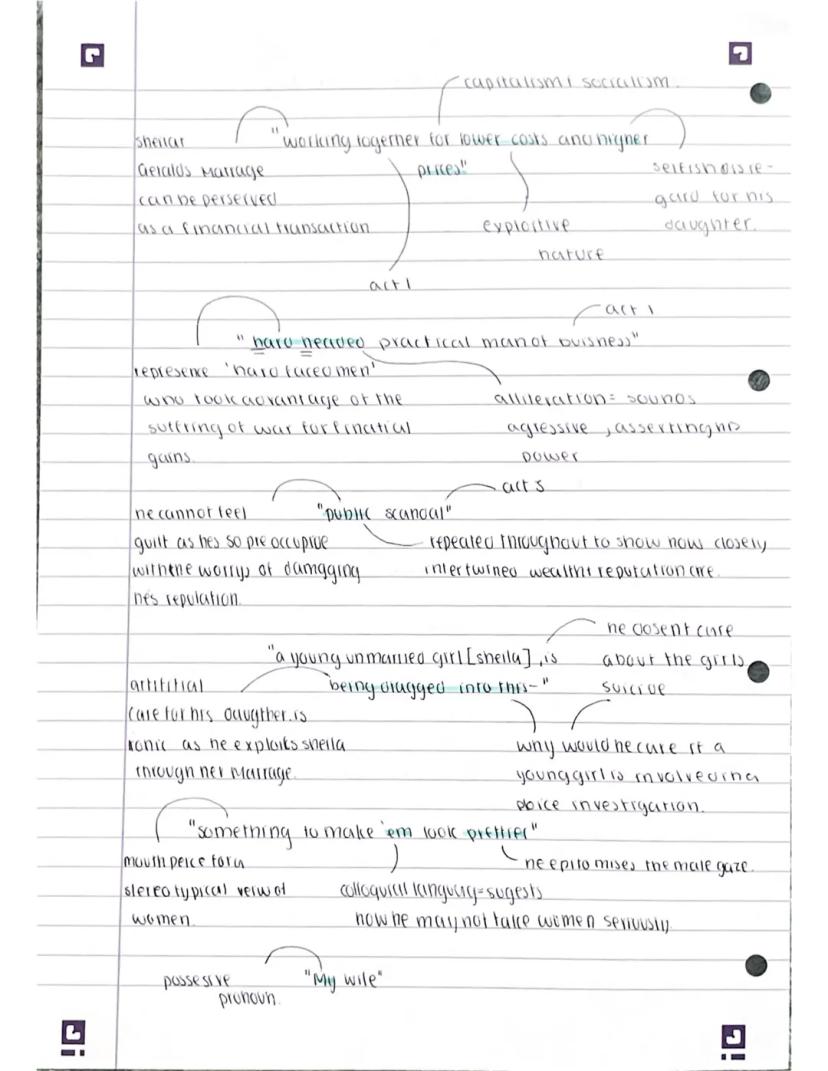 capitalism & socialism.
sheilas
"working together for lower costs and higher
Geralds Marrage
prices"
selfish disre-
can be perserved
gard for his
as a financial transaction
exploitive
daughter.
nature
act 1
act 1
" hard headed practical man of buisness"
represene 'hard faced men'
who took advantage of the
alliteration = sounds
suffring of war for finatial
agressive , asserting his
gains.
power
act 3
he cannot feel
"public scandal"
guilt as hes so pre occupive
repeated throughout to show how closely
with the worrys of damgging
intertwined wealth & reputation are.
hes reputation.
he dosent care
"a young unmarried girl [sheila], is
about the girls
artifitial
being dragged into this-"
suicide
care for his daugther. is
ronic as he exploits sheila
why would he care if a
through her Marrage.
young girl is involved in a
ploice investigation.
"something to make 'em look prettier"
mouth peice for a
he epitomises the male gaze.
stereotypical veiw of
colloquial languag=sugests
women.
how he may not take women seriously.
possesive
"My wife"
pronoun.